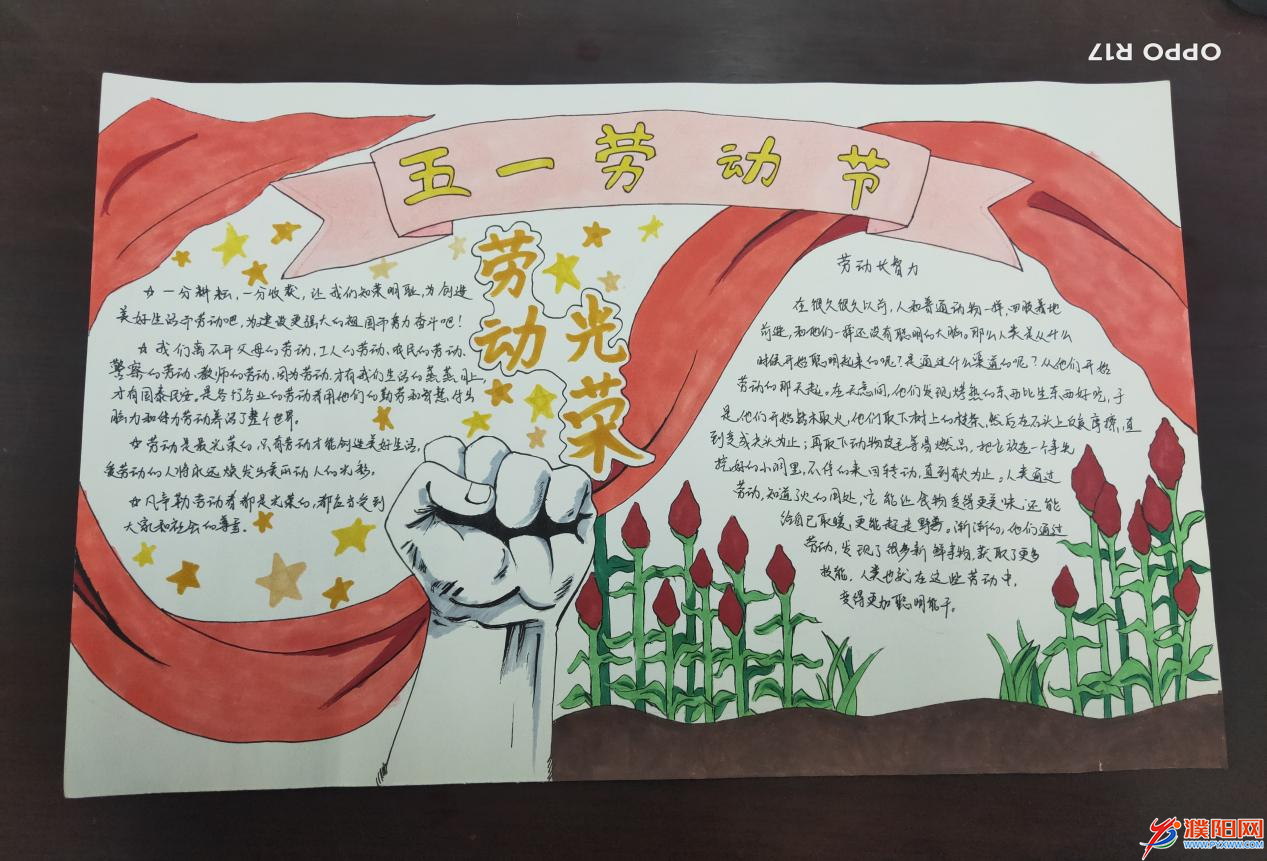 OPPO R17
五一劳动节
劳动
光荣
☆一分耕耘,一分收获,让我们知荣明耻,为创造
美好生活而劳动吧,为建设更强大的祖国而努力奋斗吧!
☆我们离不开父母的劳动、工人的劳动、农民的劳动、
警察的劳动、教师的劳动,因为劳动,才有我们生活的蒸蒸日上,
才有国泰民安。是各行各业的劳动者用他们的勤劳和智慧,付出
脑力和体力劳动养活了整个世界。
☆劳动是最光荣的,只有劳动才能创造美好生活,
爱劳动的人将永远焕发出美丽动人的光彩。
☆凡辛勤劳动者都是光荣的,都应当受到
大家和社会的尊重。
劳动长智力
在很久很久以前,人和普通动物一样,四肢着地
前进,和他们一样还没有聪明的大脑。那么人类是从什么
时候开始聪明起来的呢?是通过什么渠道的呢?从他们开始
劳动的那天起。在无意间,他们发现烤热的东西比生东西好吃,于
是,他们开始钻木取火,他们取下树上的枝条,然后在石头上反复摩擦,直
到变成尖头为止;再取下动物皮毛等易燃品,把它放在一个事先
挖好的小洞里,不停的来回转动,直到有火为止。人类通过
劳动,知道了火的用处,它能让食物变得更美味,还能
给自己取暖,更能赶走野兽。渐渐的,他们通过
劳动,发现了很多新鲜事物,获取了更多
技能。人类也就在这些劳动中,
变得更加聪明能干。
濮阳网
WWW.PYXWW.COM